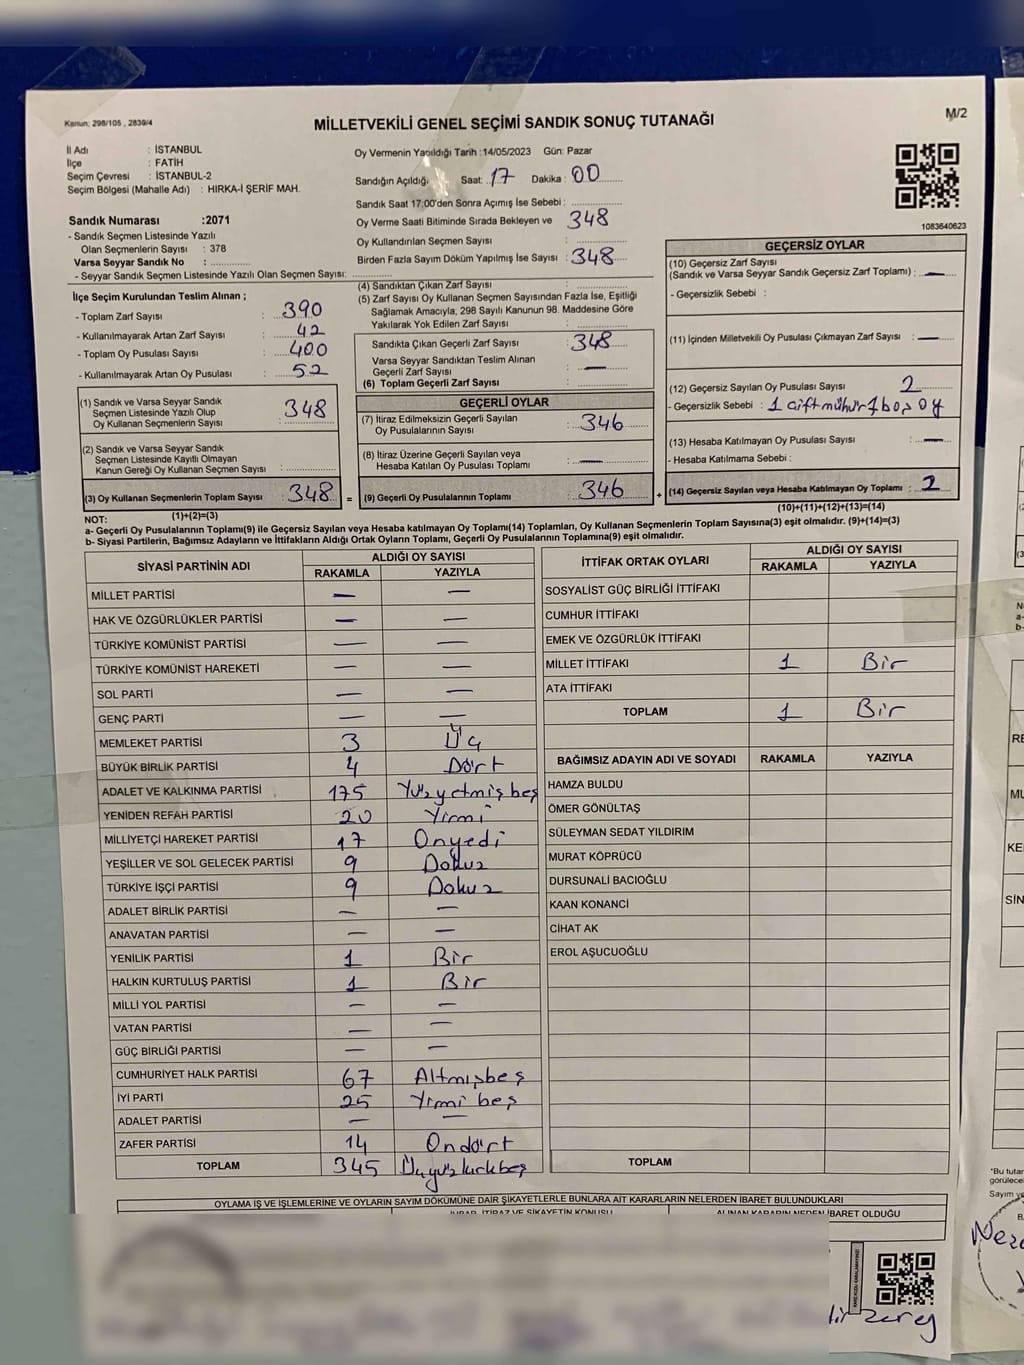 Kanun: 298/105 , 2839/4
MİLLETVEKİLİ GENEL SEÇİMİ SANDIK SONUÇ TUTANAĞI
M/2
İl Adı : İSTANBUL
İlçe : FATİH
Seçim Çevresi : İSTANBUL-2
Seçim Bölgesi (Mahalle Adı) : HIRKA-İ ŞERİF MAH.
Sandık Numarası :2071
- Sandık Seçmen Listesinde Yazılı
Olan Seçmenlerin Sayısı : 378
Varsa Seyyar Sandık No :
- Seyyar Sandık Seçmen Listesinde Yazılı Olan Seçmen Sayısı:
Oy Vermenin Yapıldığı Tarih :14/05/2023 Gün: Pazar
Sandığın Açıldığı Saat: 17 Dakika : 00
Sandık Saat 17:00'den Sonra Açımış İse Sebebi :
Oy Verme Saati Bitiminde Sırada Bekleyen ve 348
Oy Kullandırılan Seçmen Sayısı :
Birden Fazla Sayım Döküm Yapılmış İse Sayısı : 348
1083640623
İlçe Seçim Kurulundan Teslim Alınan ;
- Toplam Zarf Sayısı : 390
- Kullanılmayarak Artan Zarf Sayısı : 42
- Toplam Oy Pusulası Sayısı : 400
- Kullanılmayarak Artan Oy Pusulası : 52
(1) Sandık ve Varsa Seyyar Sandık
Seçmen Listesinde Yazılı Olup
Oy Kullanan Seçmenlerin Sayısı : 348
(2) Sandık ve Varsa Seyyar Sandık
Seçmen Listesinde Kayıtlı Olmayan
Kanun Gereği Oy Kullanan Seçmen Sayısı :
(3) Oy Kullanan Seçmenlerin Toplam Sayısı : 348 =
(1)+(2)=(3)
(4) Sandıktan Çıkan Zarf Sayısı :
(5) Zarf Sayısı Oy Kullanan Seçmen Sayısından Fazla İse, Eşitliği
Sağlamak Amacıyla; 298 Sayılı Kanunun 98. Maddesine Göre
Yakılarak Yok Edilen Zarf Sayısı :
Sandıkta Çıkan Geçerli Zarf Sayısı : 348
Varsa Seyyar Sandıktan Teslim Alınan
Geçerli Zarf Sayısı : —
(6) Toplam Geçerli Zarf Sayısı :
GEÇERLİ OYLAR
(7) İtiraz Edilmeksizin Geçerli Sayılan
Oy Pusulalarının Sayısı : 346
(8) İtiraz Üzerine Geçerli Sayılan veya
Hesaba Katılan Oy Pusulası Toplamı : —
(9) Geçerli Oy Pusulalarının Toplamı : 346 +
GEÇERSİZ OYLAR
(10) Geçersiz Zarf Sayısı
(Sandık ve Varsa Seyyar Sandık Geçersiz Zarf Toplamı) : —
- Geçersizlik Sebebi :
(11) İçinden Milletvekili Oy Pusulası Çıkmayan Zarf Sayısı : —
(12) Geçersiz Sayılan Oy Pusulası Sayısı 2
- Geçersizlik Sebebi : 1 çift mühür 1 boş oy
(13) Hesaba Katılmayan Oy Pusulası Sayısı : —
- Hesaba Katılmama Sebebi :
(14) Geçersiz Sayılan veya Hesaba Katılmayan Oy Toplamı : 2
(10)+(11)+(12)+(13)=(14)
NOT:
a- Geçerli Oy Pusulalarının Toplamı(9) ile Geçersiz Sayılan veya Hesaba katılmayan Oy Toplamı(14) Toplamları, Oy Kullanan Seçmenlerin Toplam Sayısına(3) eşit olmalıdır. (9)+(14)=(3)
b- Siyasi Partilerin, Bağımsız Adayların ve İttifakların Aldığı Ortak Oyların Toplamı, Geçerli Oy Pusulalarının Toplamına(9) eşit olmalıdır.
SİYASİ PARTİNİN ADI ALDIĞI OY SAYISI
RAKAMLA YAZIYLA
MİLLET PARTİSİ — —
HAK VE ÖZGÜRLÜKLER PARTİSİ — —
TÜRKİYE KOMÜNİST PARTİSİ — —
TÜRKİYE KOMÜNİST HAREKETİ — —
SOL PARTİ — —
GENÇ PARTİ — —
MEMLEKET PARTİSİ 3 Üç
BÜYÜK BİRLİK PARTİSİ 4 Dört
ADALET VE KALKINMA PARTİSİ 175 Yüzyetmişbeş
YENİDEN REFAH PARTİSİ 20 Yirmi
MİLLİYETÇİ HAREKET PARTİSİ 17 Onyedi
YEŞİLLER VE SOL GELECEK PARTİSİ 9 Dokuz
TÜRKİYE İŞÇİ PARTİSİ 9 Dokuz
ADALET BİRLİK PARTİSİ — —
ANAVATAN PARTİSİ — —
YENİLİK PARTİSİ 1 Bir
HALKIN KURTULUŞ PARTİSİ 1 Bir
MİLLİ YOL PARTİSİ — —
VATAN PARTİSİ — —
GÜÇ BİRLİĞİ PARTİSİ — —
CUMHURİYET HALK PARTİSİ 67 Altmışbeş
İYİ PARTİ 25 Yirmi beş
ADALET PARTİSİ — —
ZAFER PARTİSİ 14 Ondört
TOPLAM 345 Üçyüzkırkbeş
İTTİFAK ORTAK OYLARI ALDIĞI OY SAYISI
RAKAMLA YAZIYLA
SOSYALİST GÜÇ BİRLİĞİ İTTİFAKI
CUMHUR İTTİFAKI
EMEK VE ÖZGÜRLÜK İTTİFAKI
MİLLET İTTİFAKI 1 Bir
ATA İTTİFAKI
TOPLAM 1 Bir
BAĞIMSIZ ADAYIN ADI VE SOYADI RAKAMLA YAZIYLA
HAMZA BULDU
ÖMER GÖNÜLTAŞ
SÜLEYMAN SEDAT YILDIRIM
MURAT KÖPRÜCÜ
DURSUNALİ BACIOĞLU
KAAN KONANCİ
CİHAT AK
EROL AŞUCUOĞLU
TOPLAM
OYLAMA İŞ VE İŞLEMLERİNE VE OYLARIN SAYIM DÖKÜMÜNE DAİR ŞİKAYETLERLE BUNLARA AİT KARARLARIN NELERDEN İBARET BULUNDUKLARI
İTİRAZ VE ŞİKAYETİN KONUSU ALINAN KARARIN NEDEN İBARET OLDUĞU